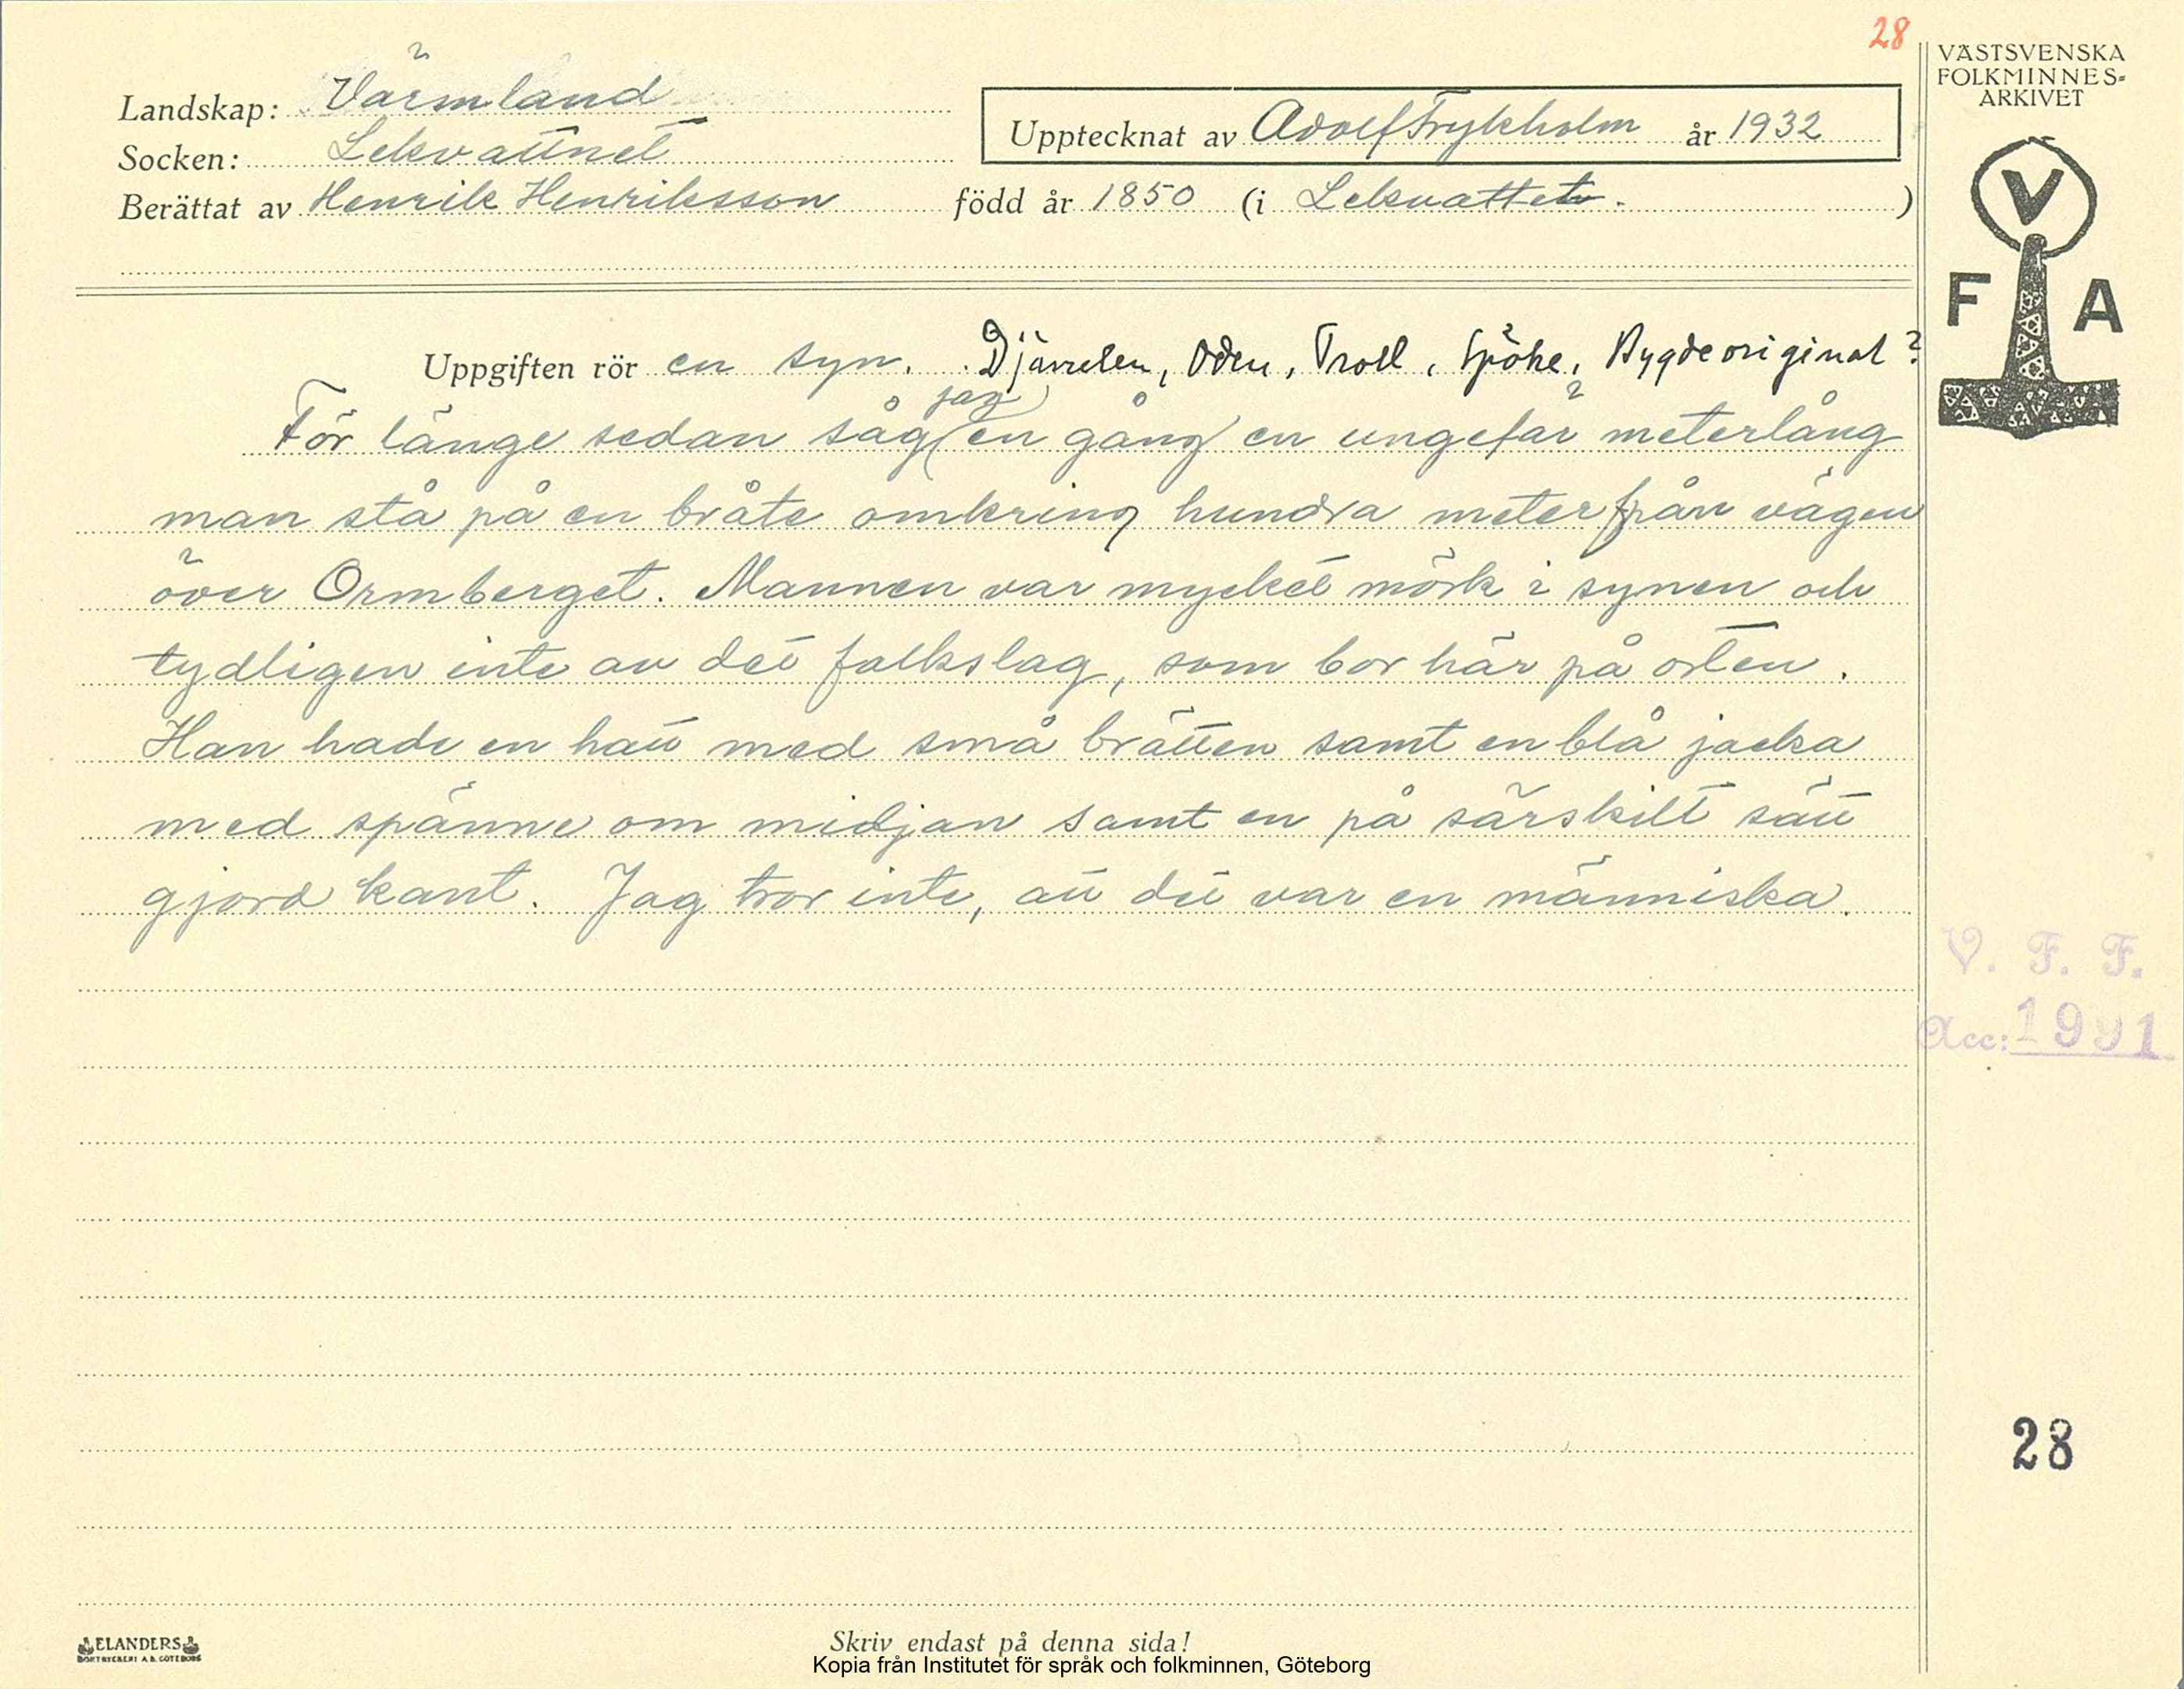 28
VÄSTSVENSKA
FOLKMINNES-
ARKIVET
Landskap: Värmland
Socken: Lekvattnet
Upptecknat av Adolf Frykholm år 1932
Berättat av Henrik Henriksson född år 1850 (i Lekvattet. )
V
F A
Uppgiften rör en syn. Djävulen, Oden, Troll, Spöke, Bygdeoriginal?
jag
För länge sedan såg (en gång) en ungefär meterlång
man stå på en bråte omkring hundra meter från vägen
över Ormberget. Mannen var mycket mörk i synen och
tydligen inte av det folkslag, som bor här på orten.
Han hade en hatt med små brätten samt en blå jacka
med spänne om midjan samt en på särskilt sätt
gjord kant. Jag tror inte, att det var en människa.
V. F. F.
Acc: 1991
28
ELANDERS
BOKTRYCKERI A.B. GÖTEBORG
Skriv endast på denna sida!
Kopia från Institutet för språk och folkminnen, Göteborg